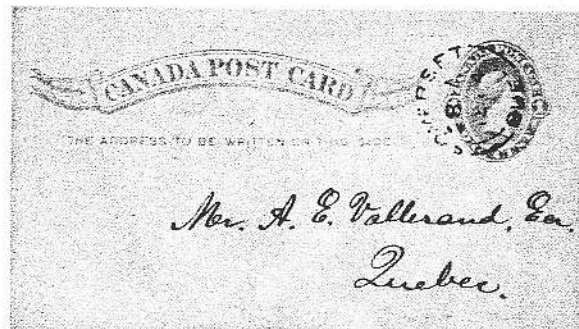 CANADA POST CARD
THE ADDRESS TO BE WRITTEN ON THIS SIDE
Mr. A. E. Vallerand, Esr.
Quebec.